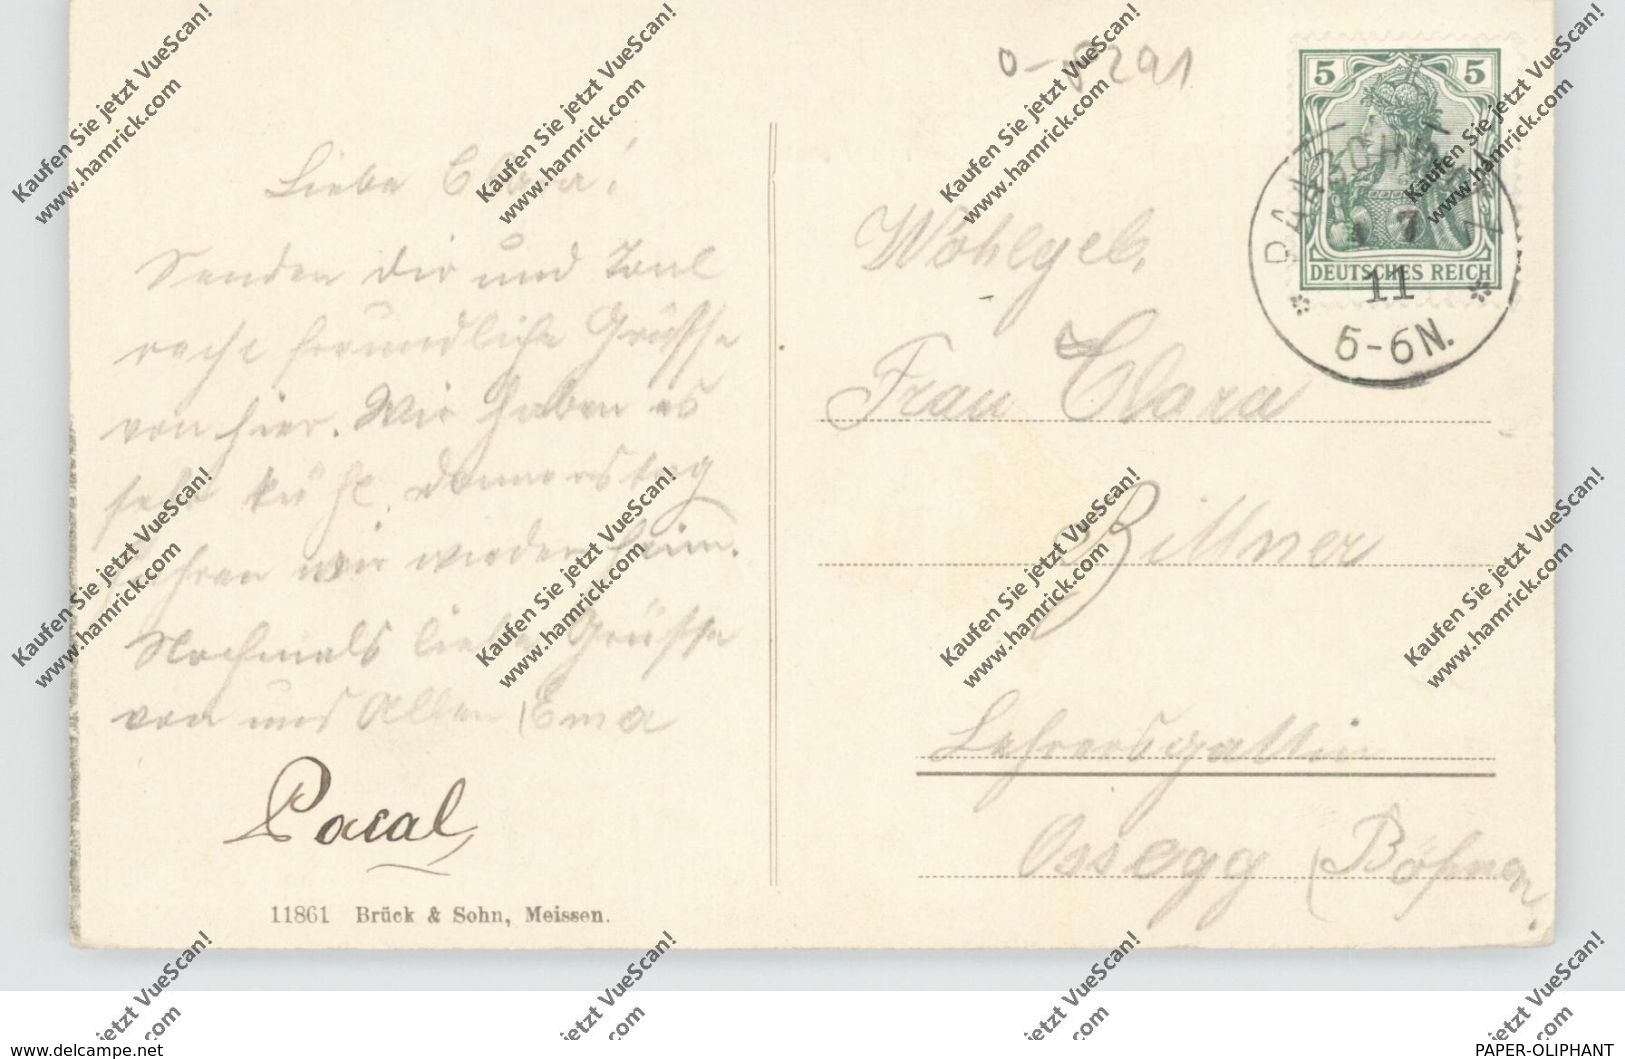 0-8291
5 5
DEUTSCHES REICH
7
11
5-6N.
Liebe Clara!
Senden dir und Paul
recht freundliche Grüsse
von hier. Wir haben es
sehr kühl. Donnerstag
fahren wir wieder heim.
Nochmals liebe Grüsse
von uns Allen Ema
Pascal
11861 Brück & Sohn, Meissen.
Wohlgeb.
Frau Clara
Bittner
Lehrersgattin
Ossegg (Böhmen.
Kaufen Sie jetzt VueScan!
www.hamrick.com
www.delcampe.net
PAPER-OLIPHANT